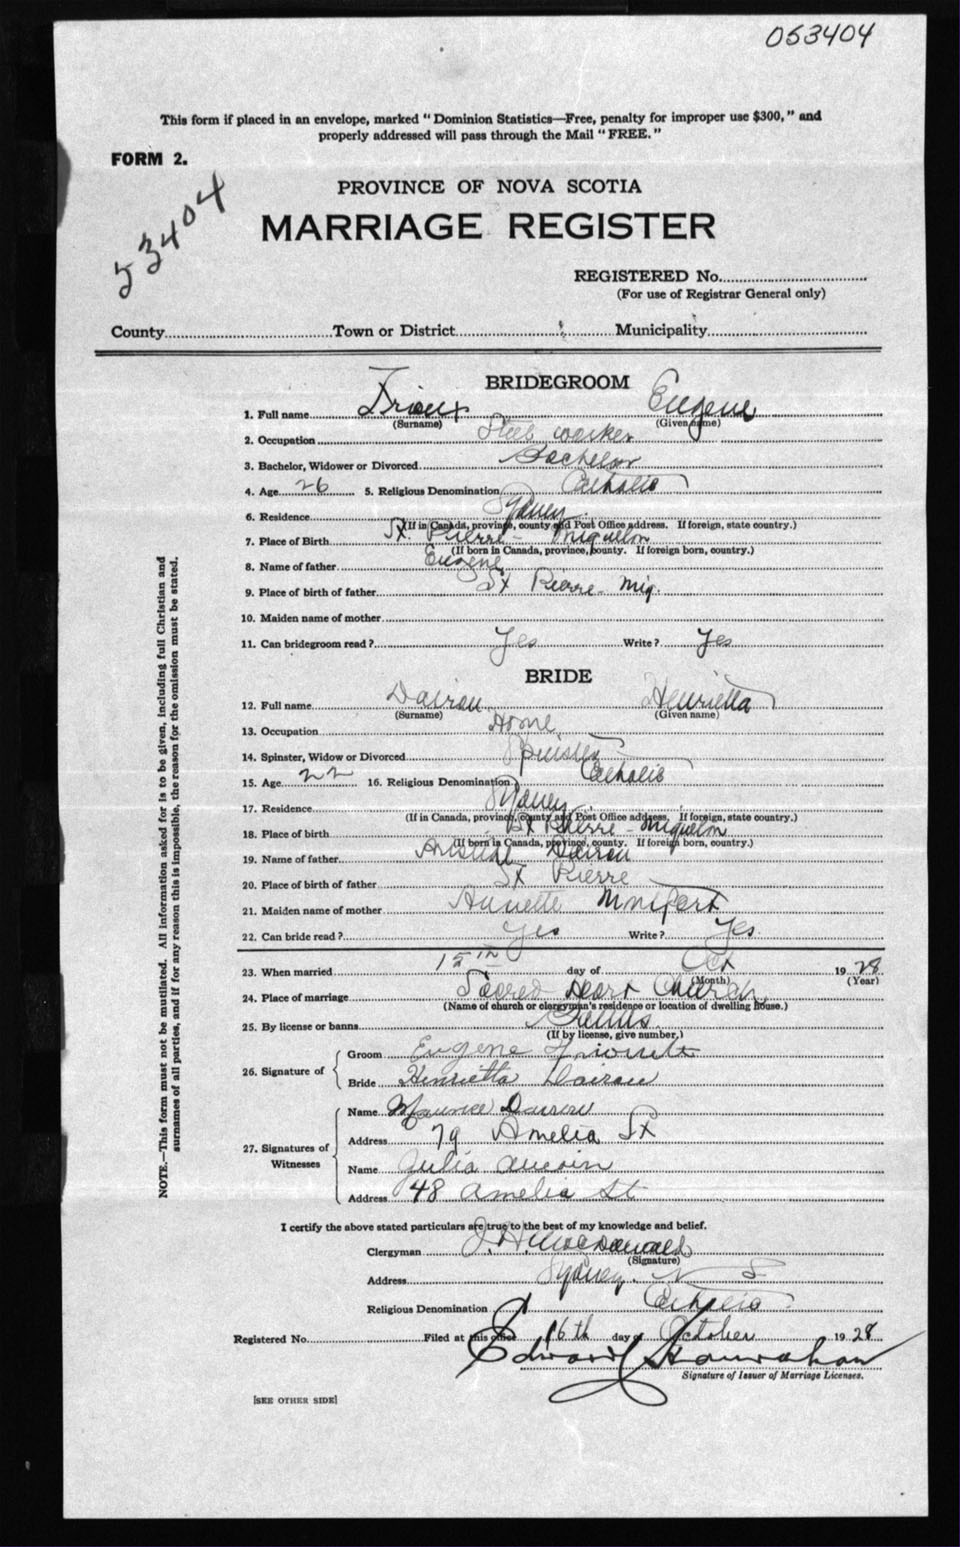 053404
This form if placed in an envelope, marked "Dominion Statistics—Free, penalty for improper use $300," and
properly addressed will pass through the Mail "FREE."
FORM 2.
53404
PROVINCE OF NOVA SCOTIA
MARRIAGE REGISTER
REGISTERED No.
(For use of Registrar General only)
County Town or District Municipality
BRIDEGROOM
1. Full name Eugene
(Surname) (Given name)
2. Occupation Steel worker
3. Bachelor, Widower or Divorced Bachelor
4. Age 26 5. Religious Denomination Catholic
6. Residence Sydney
(If in Canada, province, county and Post Office address. If foreign, state country.)
7. Place of Birth St. Pierre - Miquelon
(If born in Canada, province, county. If foreign born, country.)
8. Name of father Eugene
9. Place of birth of father St Pierre - Miq.
10. Maiden name of mother
11. Can bridegroom read? Yes Write? Yes
BRIDE
12. Full name Dairou Henrietta
(Surname) (Given name)
13. Occupation Home
14. Spinster, Widow or Divorced Spinster
15. Age 22 16. Religious Denomination Catholic
17. Residence Sydney
(If in Canada, province, county and Post Office address. If foreign, state country.)
18. Place of birth St Pierre - Miquelon
(If born in Canada, province, county. If foreign born, country.)
19. Name of father Dairou
20. Place of birth of father St Pierre
21. Maiden name of mother
22. Can bride read? Yes Write? Yes.
23. When married 15th day of Oct 1928
(Month) (Year)
24. Place of marriage Sacred Heart Church
(Name of church or clergyman's residence or location of dwelling house.)
25. By license or banns
(If by license, give number.)
26. Signature of Groom Eugene
Bride Henrietta Dairou
27. Signatures of Witnesses Name Maurice Dairou
Address 79 Amelia St
Name Julia Aucoin
Address 48 Amelia St
I certify the above stated particulars are true to the best of my knowledge and belief.
Clergyman J. H. MacDonald
(Signature)
Address Sydney. N S
Religious Denomination Catholic
Registered No. Filed at this office 16th day of October 1928
Edward Hanrahan
Signature of Issuer of Marriage Licenses.
[SEE OTHER SIDE]
NOTE.—This form must not be mutilated. All information asked for is to be given, including full Christian and
surnames of all parties, and if for any reason this is impossible, the reason for the omission must be stated.